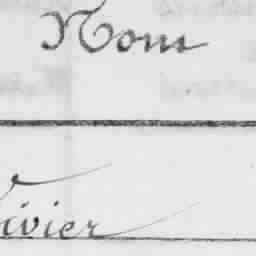 Nom
ivier